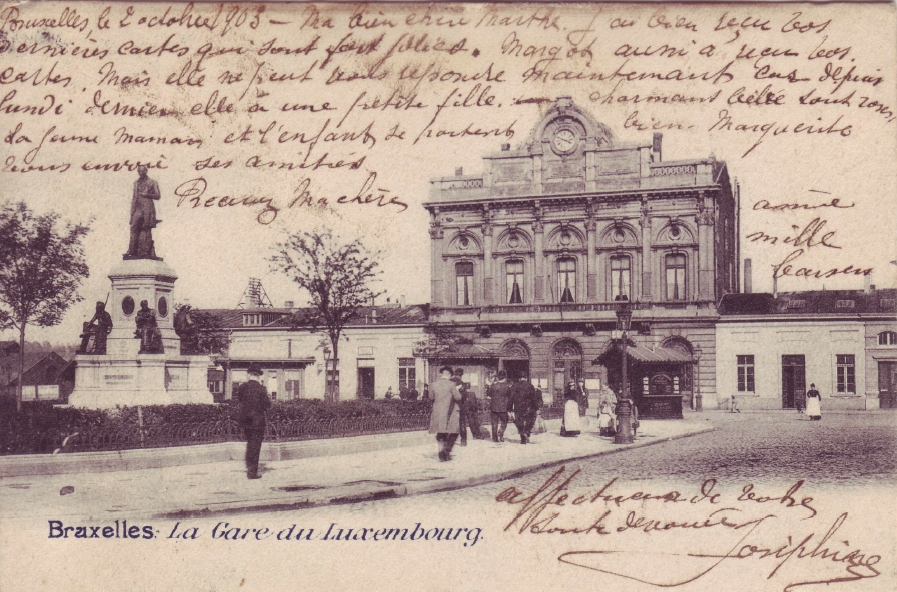 Bruxelles le 2 octobre 1903 - Ma bien chère Marthe. J'ai bien reçu vos
dernières cartes qui sont fort jolies. Margot aussi a reçu vos
cartes. Mais elle ne peut vous repondre maintenant car depuis
lundi dernier elle à une petite fille. charmans belle
La jeune Maman et l'enfant se portent bien. Marguerite
vous envoie ses amities
Recevez Ma chère
amie
mille
baisers
affectueux de votre
toute devouée
Joséphine
Bruxelles: La Gare du Luxembourg.